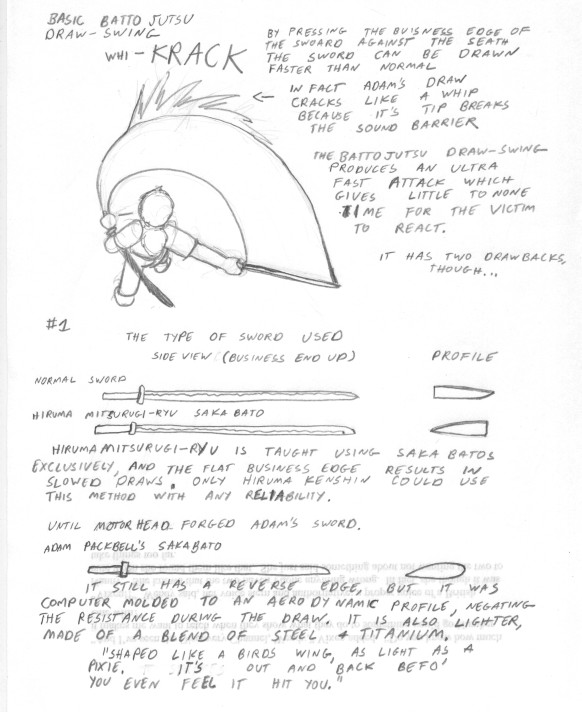 BASIC BATTO JUTSU
DRAW-SWING
WHI-KRACK
BY PRESSING THE BUISNESS EDGE OF
THE SWOARD AGAINST THE SEATH
THE SWORD CAN BE DRAWN
FASTER THAN NORMAL
← IN FACT ADAM'S DRAW
CRACKS LIKE A WHIP
BECAUSE IT'S TIP BREAKS
THE SOUND BARRIER
THE BATTOJUTSU DRAW-SWING
PRODUCES AN ULTRA
FAST ATTACK WHICH
GIVES LITTLE TO NONE
TIME FOR THE VICTIM
TO REACT.
IT HAS TWO DRAWBACKS,
THOUGH...
#1
THE TYPE OF SWORD USED
SIDE VIEW (BUSINESS END UP)
PROFILE
NORMAL SWORD
HIRUMA MITSURUGI-RYU SAKA BATO
HIRUMA MITSURUGI-RYU IS TAUGHT USING SAKA BATOS
EXCLUSIVELY, AND THE FLAT BUSINESS EDGE RESULTS IN
SLOWED DRAWS. ONLY HIRUMA KENSHIN COULD USE
THIS METHOD WITH ANY RELIABILITY.
UNTIL MOTORHEAD FORGED ADAM'S SWORD.
ADAM PACKBELL'S SAKABATO
IT STILL HAS A REVERSE EDGE, BUT IT WAS
COMPUTER MOLDED TO AN AERODYNAMIC PROFILE, NEGATING
THE RESISTANCE DURING THE DRAW. IT IS ALSO LIGHTER,
MADE OF A BLEND OF STEEL + TITANIUM.
"SHAPED LIKE A BIRDS WING, AS LIGHT AS A
PIXIE. IT'S OUT AND BACK BEFO'
YOU EVEN FEEL IT HIT YOU."